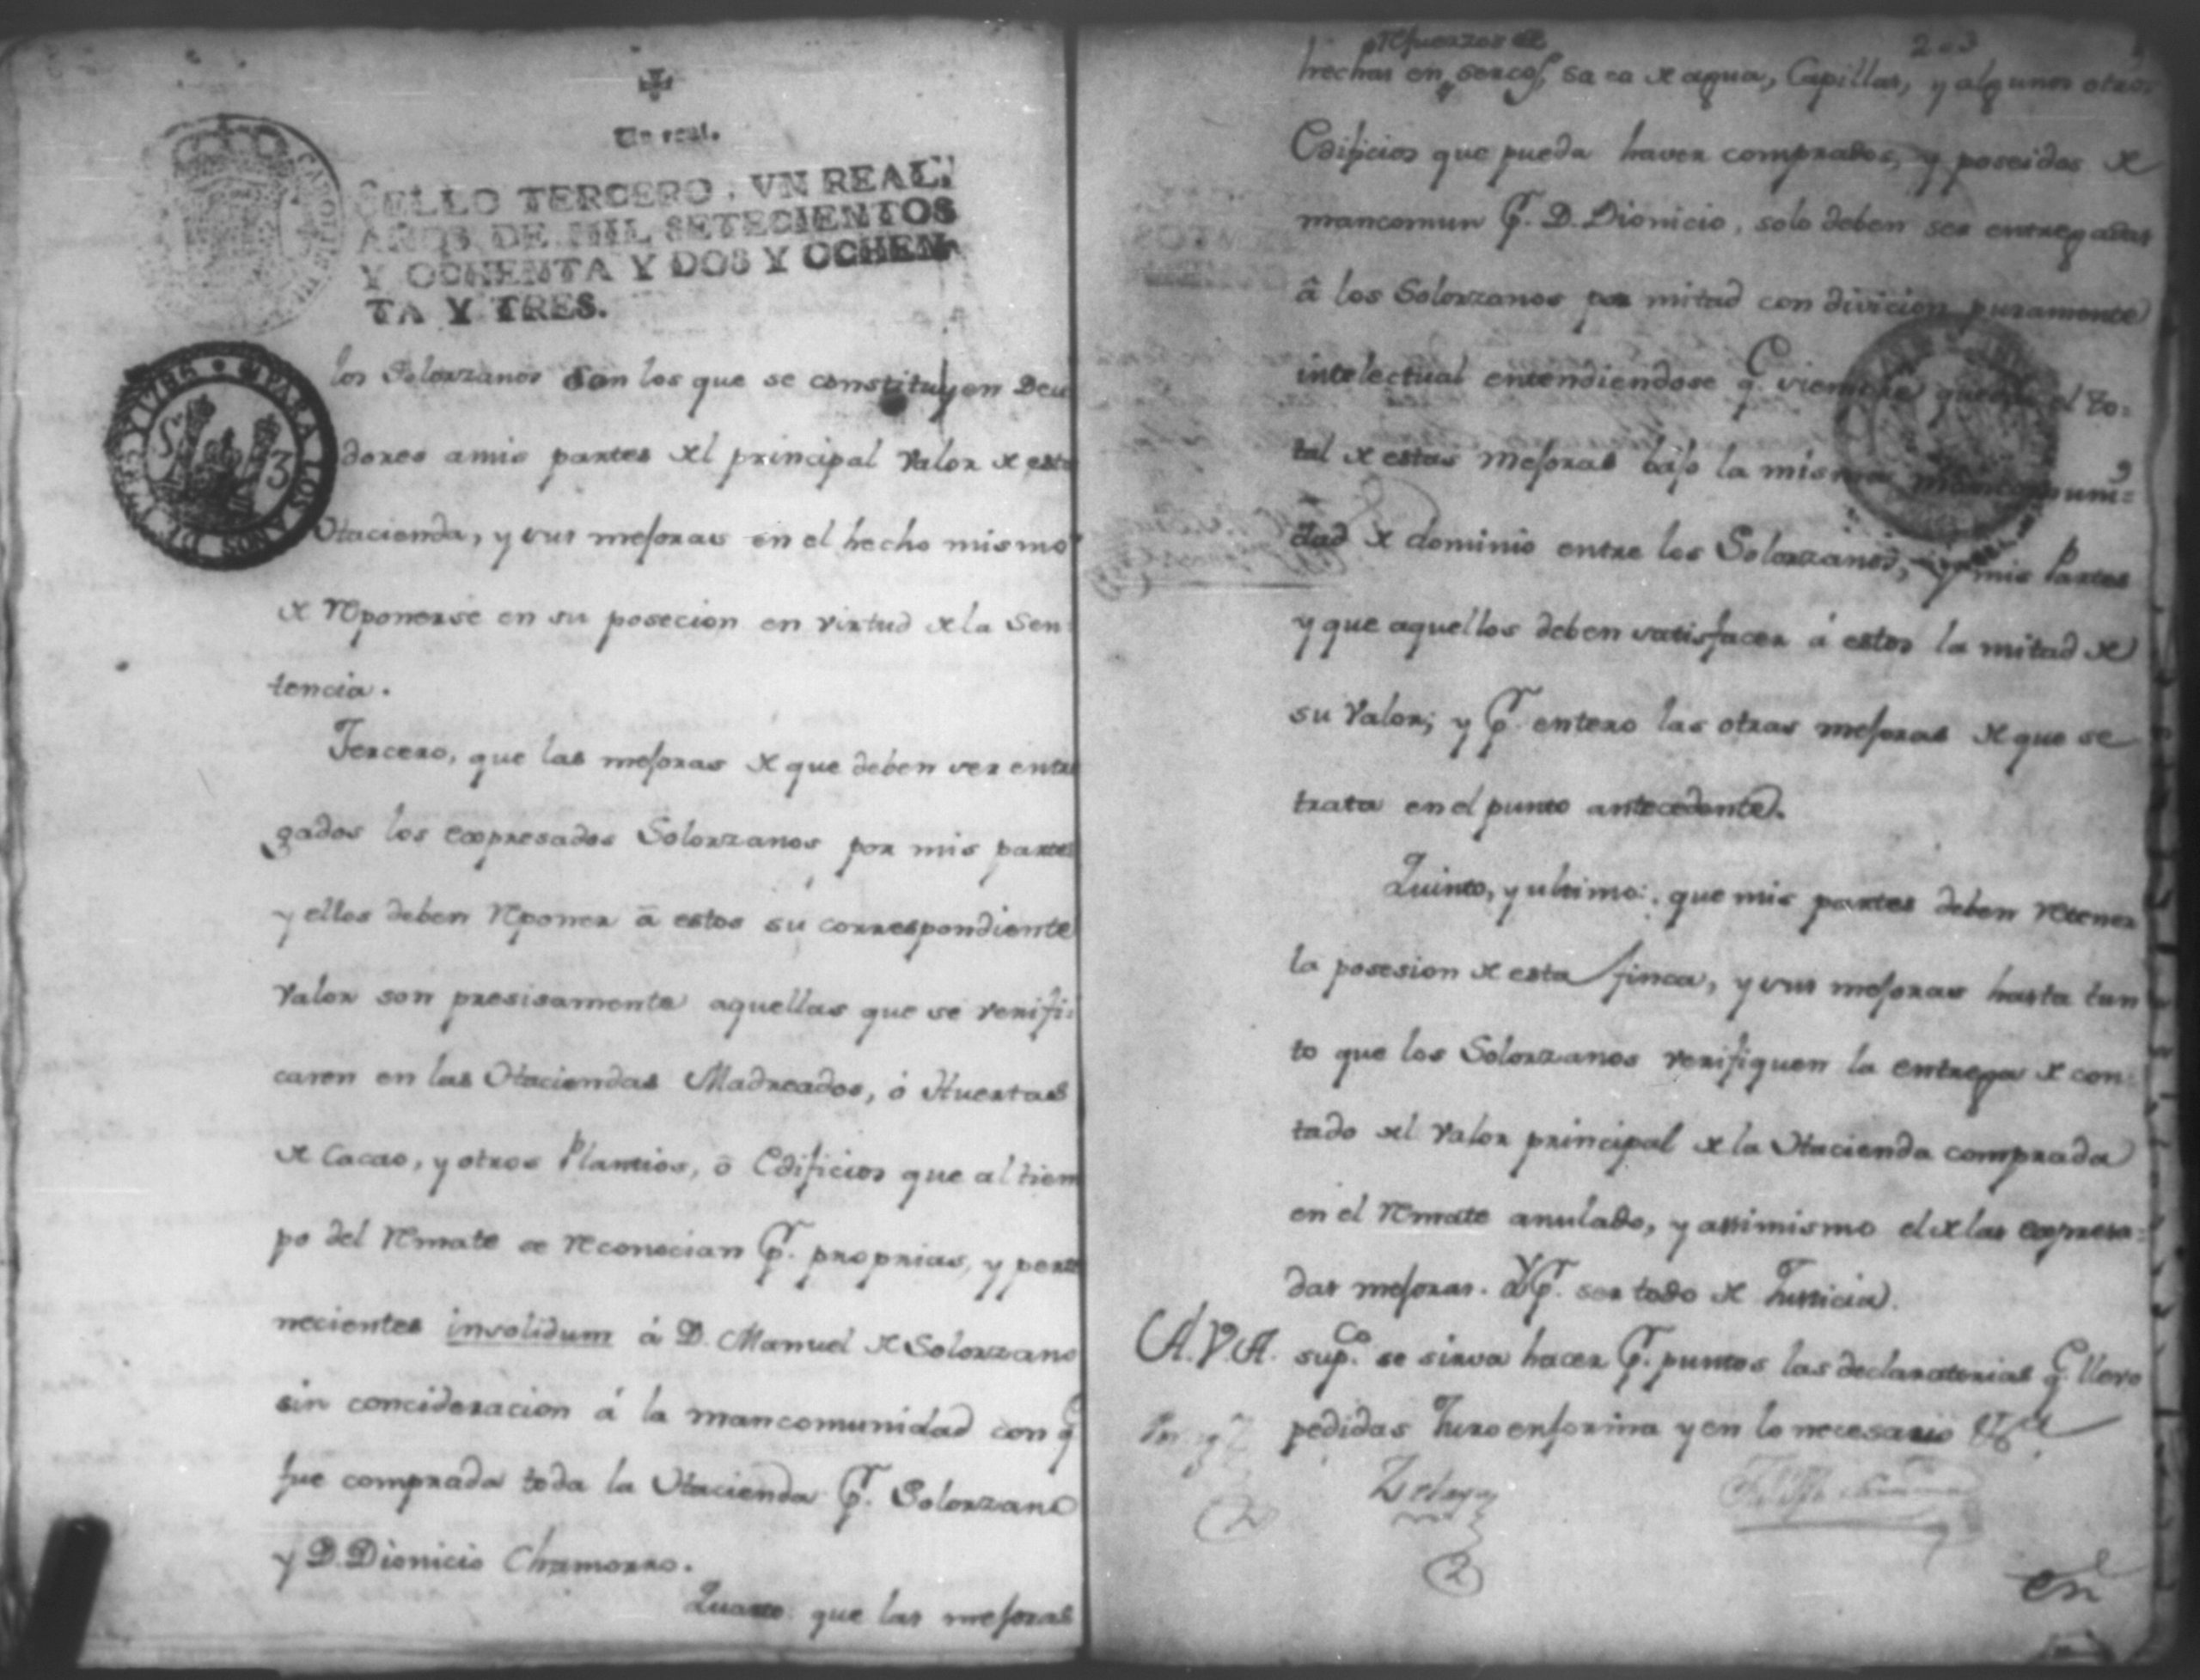 Un real.
SELLO TERCERO, VN REAL,
AÑOS DE MIL SETECIENTOS
Y OCHENTA Y DOS Y OCHEN
TA Y TRES.
PARA LOS AÑOS DE 1784 Y 1785
los Solorzanos son los que se constituyen Deu
dores a mis partes del principal Valor de esta
Hacienda, y sus mejoras en el hecho mismo
de Reponerse en su posecion en virtud de la Sen
tencia.
Tercero, que las mejoras de que deben ser entre
gados los expresados Solorzanos por mis partes
y ellos deben Reponer â estos su correspondiente
Valor son presisamente aquellas que se verifi:
caren en las Haciendas Madreados, ó Huertas
de Cacao, y otros Plantios, ô Edificios que al tiem
po del Remate se Reconocian pr. proprias, y perte
necientes insolidum á D. Manuel de Solorzano
sin concideracion á la mancomunidad con q
fue comprada toda la Hacienda pr. Solorzano
y D. Dionicio Chamorro.
Quarto: que las mejoras
203
refuerzos de
hechas en sercos, saca de agua, Capillas, y algunos otros
Edificios que pueda haver comprados, y poseidos de
mancomun pr. D. Dionicio, solo deben ser entregadas
â los Solorzanos por mitad con divicion puramente
intelectual entendiendose q. el to:
tal de estas mejoras bajo la misma
dad de dominio entre los Solorzanos, y mis Partes
y que aquellos deben satisfacer á estos la mitad de
su Valor; y pr. entero las otras mejoras de que se
trata en el punto antecedente.
Quinto, y ultimo: que mis partes deben Retener
la posesion de esta finca, y sus mejoras hasta tan
to que los Solorzanos verifiquen la entrega de con
tado del Valor principal de la Hacienda comprada
en el Remate anulado, y assimismo el de las expresa:
das mejoras. Y pr. ser todo de Justicia.
A.V.A. supco. se sirva hacer pr. puntos las declaratorias q. llevo
pedidas Juro en forma y en lo necesario &a
Zelaya
2
en